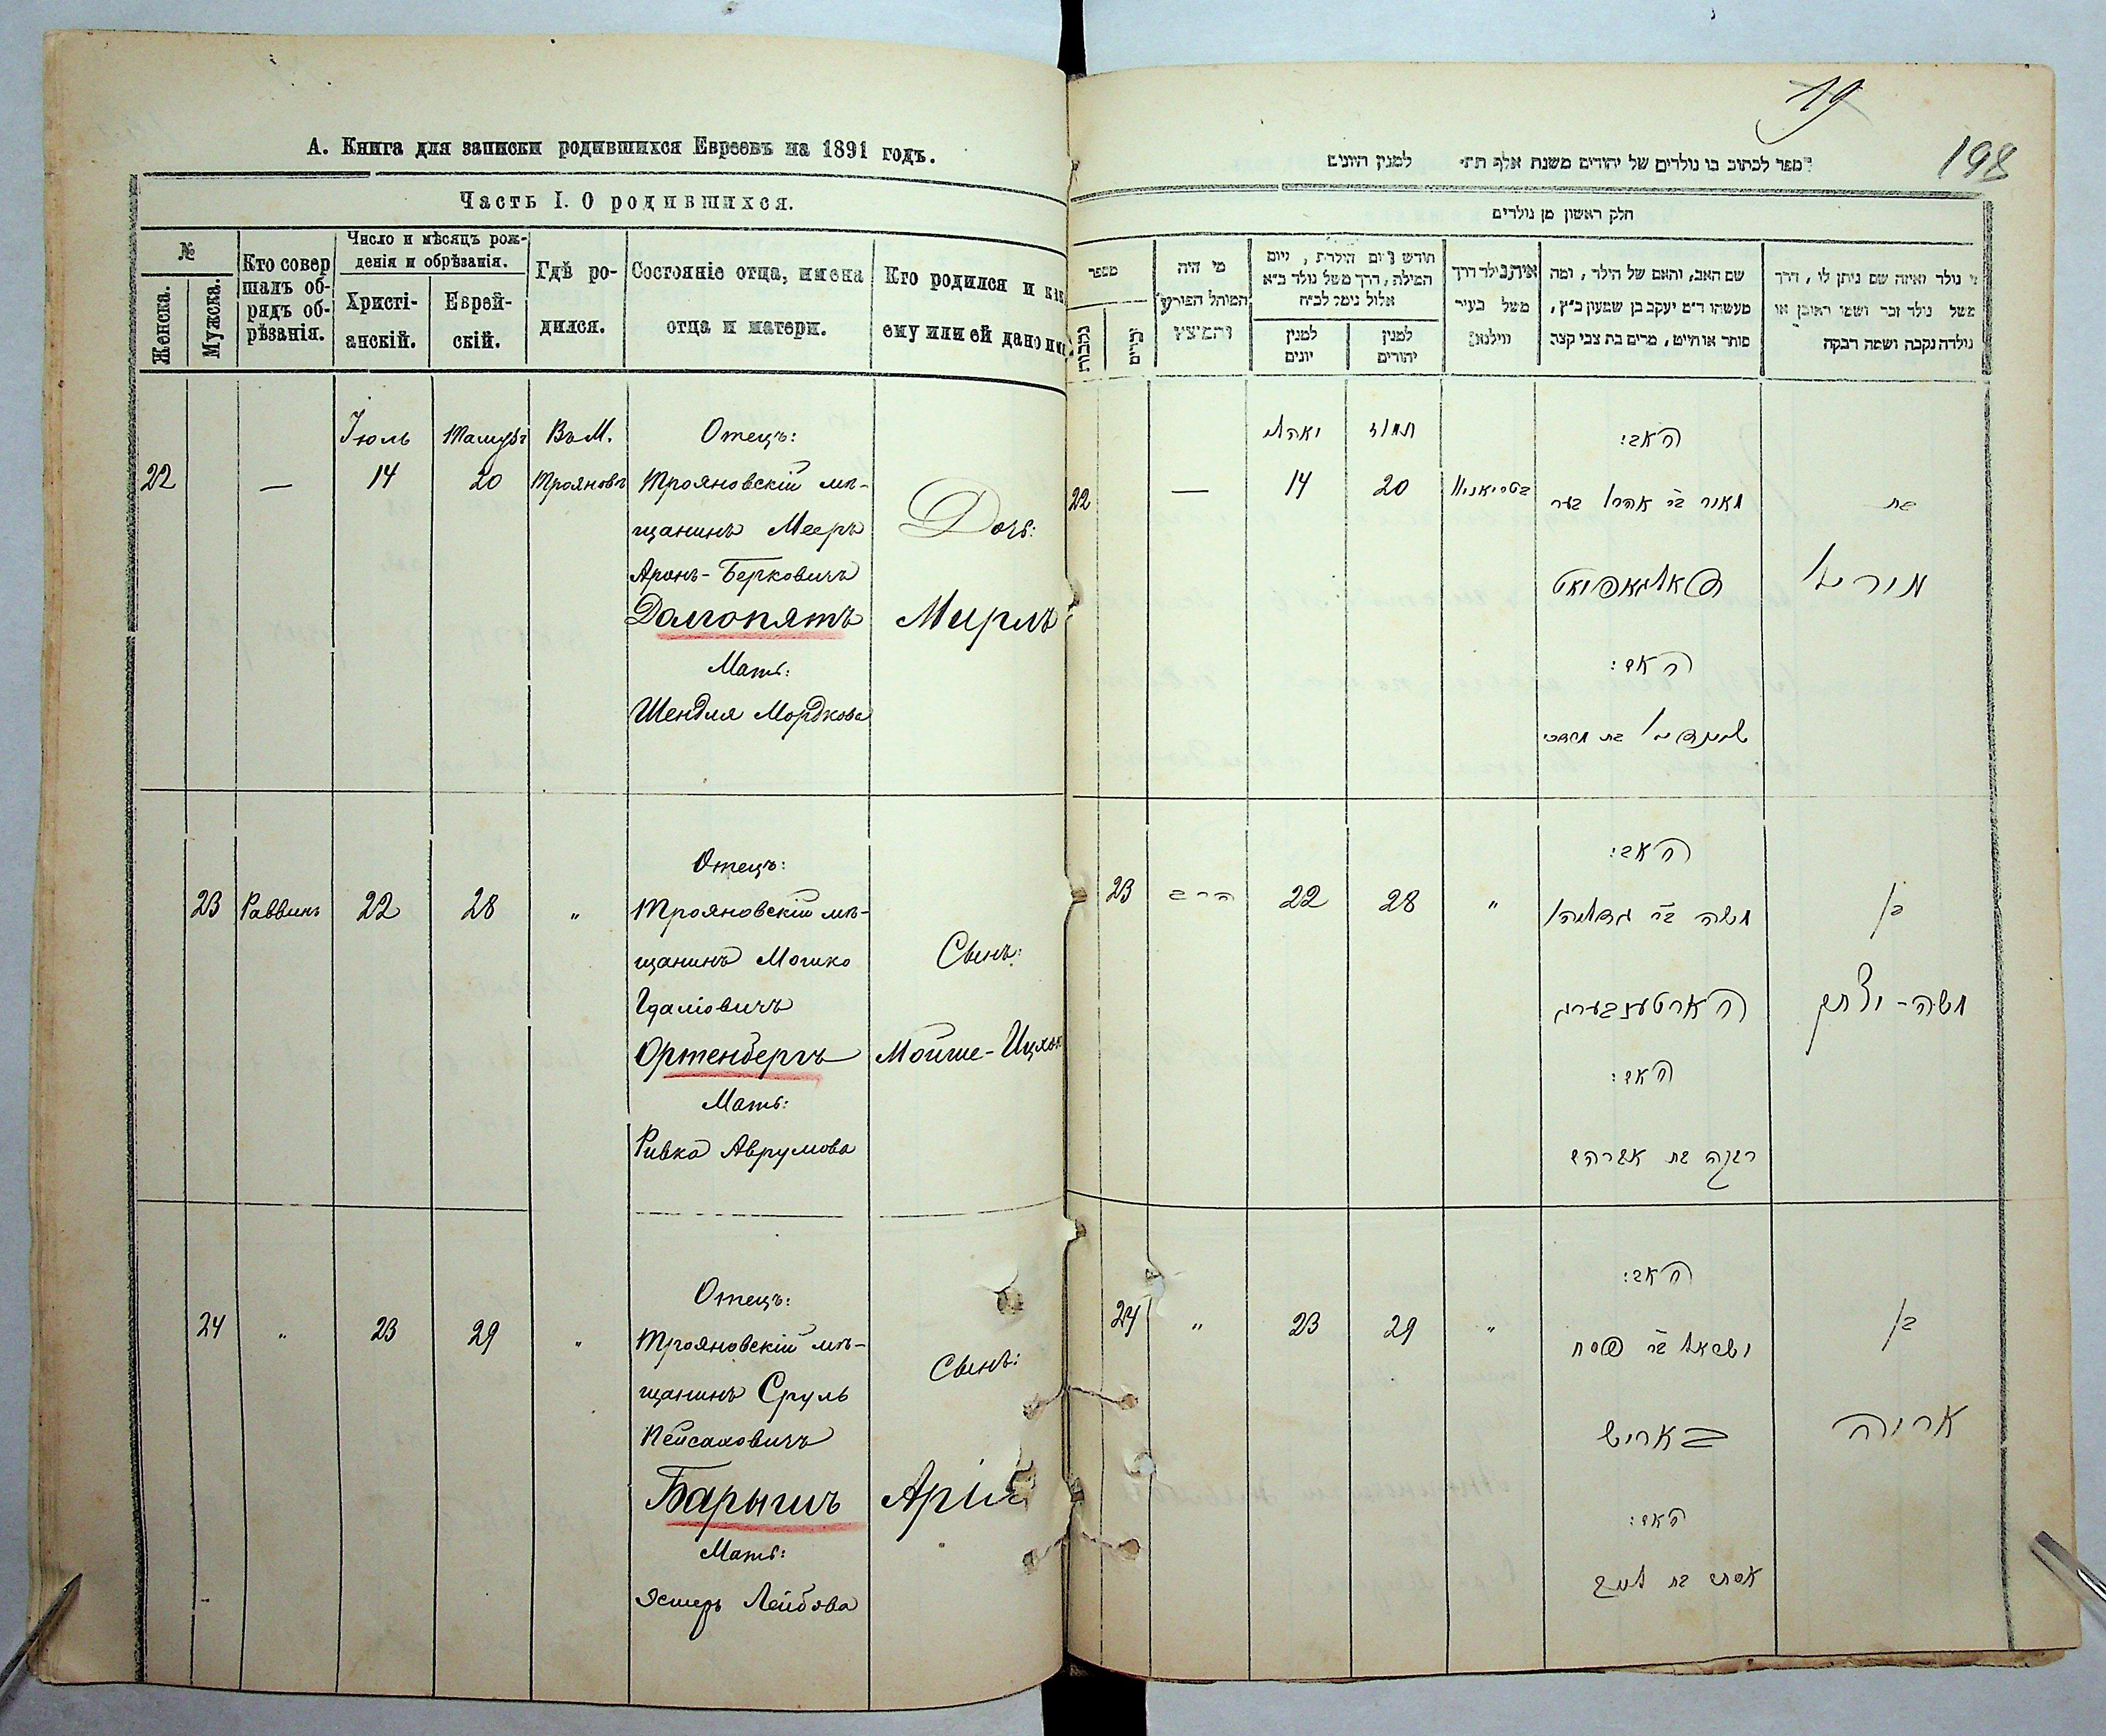 А. Книга для записки родившихся Евреевъ на 1891 годъ.
Часть I. О родившихся.
№
Женска.
Мужска.
Кто совер
шалъ об-
рядъ об-
рѣзанія.
Число и мѣсяцъ рож-
денія и обрѣзанія.
Христі-
анскій.
Еврей-
скій.
Гдѣ ро-
дился.
Состояніе отца, имена
отца и матери.
Кто родился и как
ему или ей дано им
Іюль
Тамузъ
Въ М.
Отецъ:
22
—
14
20
Трояновъ
Трояновскій мѣ-
щанинъ Мееръ
Аронъ-Берковичъ
Долгопятъ
Мать:
Шендля Мордкова
Дочь:
Мирль
23
Раввинъ
22
28
"
Отецъ:
Трояновскій мѣ-
щанинъ Мошко
Гдаліовичъ
Ортенбергъ
Мать:
Ривка Аврумова
Сынъ:
Мойше-Ицхок
24
"
23
29
"
Отецъ:
Трояновскій мѣ-
щанинъ Сруль
Пейсаховичъ
Барышъ
Мать:
Эстеръ Лейбова
Сынъ:
Арій
19
198
ספר לכתוב בו נולדים של יהודים משנת אלף תת״ למנין היונים
חלק ראשון מן נולדים
מספר
נקבות
זכרים
מי היה
המוהל הפורע
והמוצץ
חודש ויום הולדת, ויום
המילה, דרך משל נולד ב״א
אלול נימל לב״ח
למנין
יונים
למנין
יהודים
איה נילד דרך
משל בעיר
ווילנא
שם האב, והאם של הילד, ומה
מעשהו ד״מ יעקב בן שמעון כ״ץ,
סוחר או חייט, מרים בת צבי קצב
מי נולד ואיזה שם ניתן לו, דרך
משל נולד זכר ושמו ראובן או
נולדה נקבה ושמה רבקה
יאהלי
תמוז
האב:
22
—
14
20
מאיר ב״ר אהרן בער
בת
דאלגאפיאט
מירל
האם:
שיינדיל בת מרדכי
האב:
23
הרב
22
28
"
משה ב״ר גדליהו
בן
הארטענבערג
משה-יצחק
האם:
רבקה בת אברהם
האב:
24
"
23
29
"
ישראל ב״ר פסח
בן
באריש
אריה
האם:
אסתר בת לייב